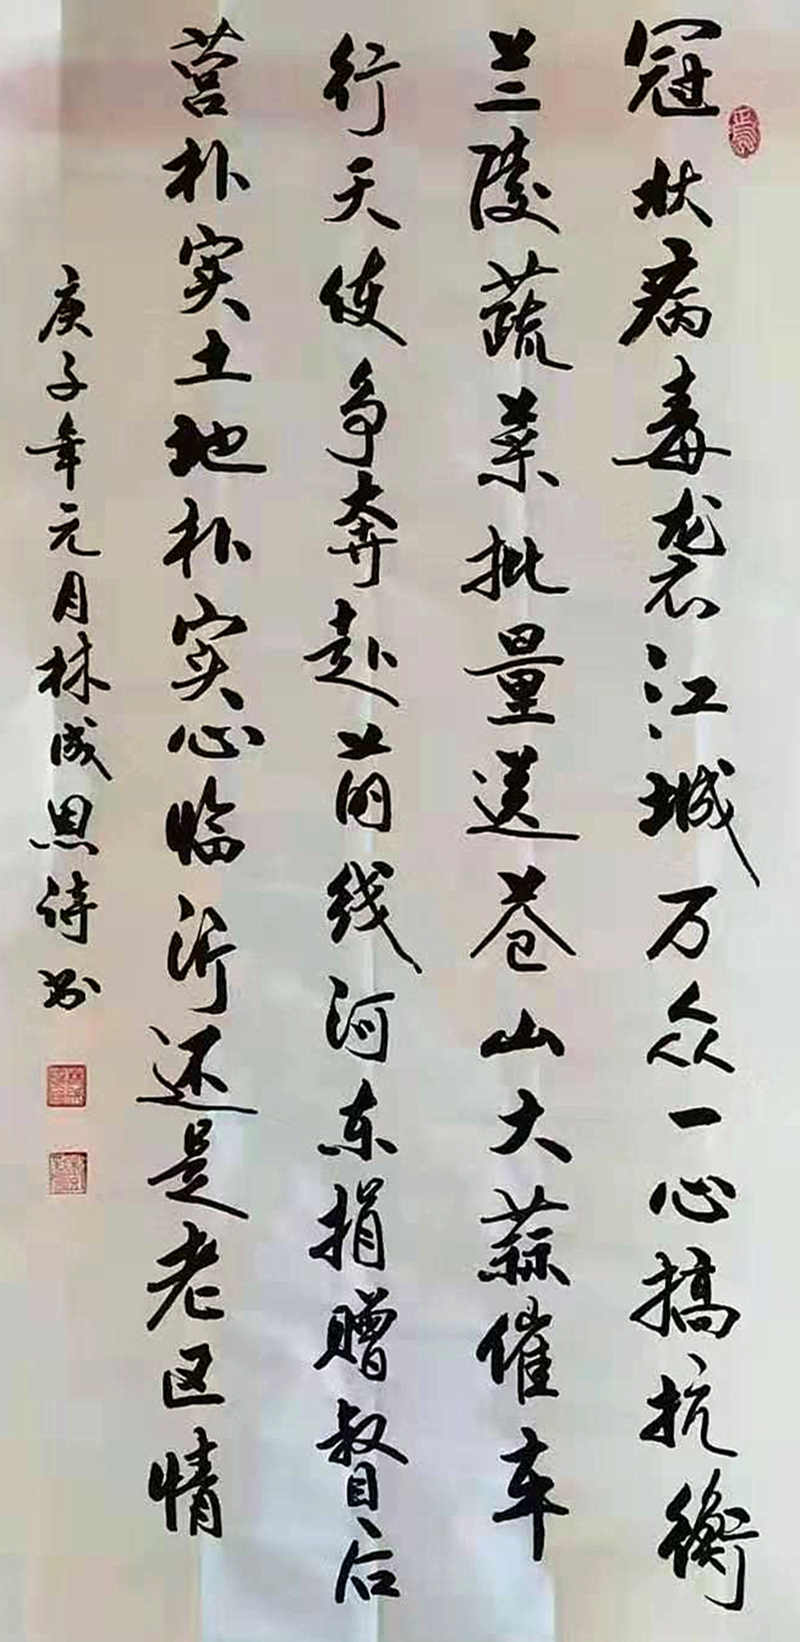 冠状病毒袭江城万众一心搞抗衡
兰陵蔬菜批量送苍山大蒜催车
行天使争奔赴前线河东捐赠督后
营朴实土地朴实心临沂还是老区情
庚子年元月林成恩诗书